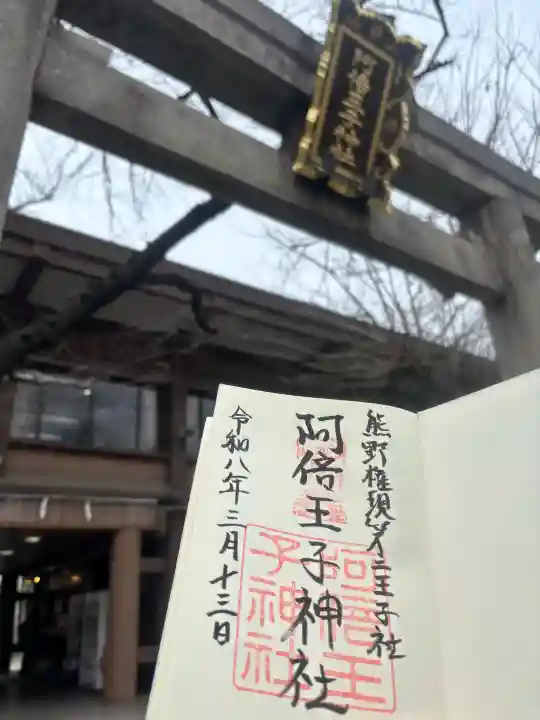 阿倍王子神社
熊野権現第二王子社
阿倍王子神社
令和八年三月十三日
阿倍王
子神社